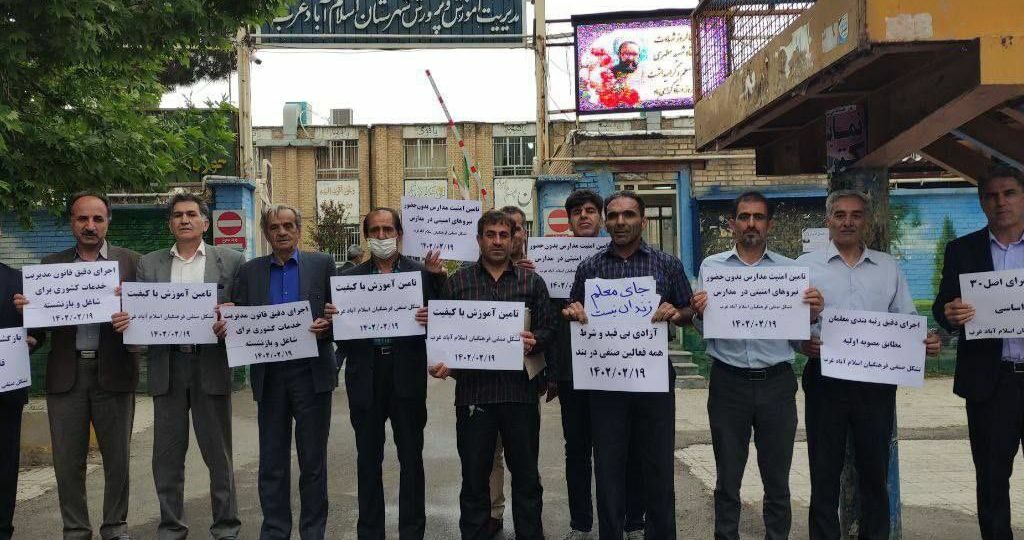 مدیریت آموزش و پرورش شهرستان اسلام آباد غرب
اجرای دقیق قانون مدیریت
خدمات کشوری برای
شاغل و بازنشسته
۱۴۰۲/۰۲/۱۹
تامین آموزش با کیفیت
تشکل صنفی فرهنگیان اسلام آباد غرب
۱۴۰۲/۰۲/۱۹
اجرای دقیق قانون مدیریت
خدمات کشوری برای
شاغل و بازنشسته
۱۴۰۲/۰۲/۱۹
تامین آموزش با کیفیت
تشکل صنفی فرهنگیان اسلام آباد غرب
۱۴۰۲/۰۲/۱۹
تامین امنیت مدارس بدون حضور
نیروهای امنیتی در مدارس
تشکل صنفی فرهنگیان اسلام آباد غرب
۱۴۰۲/۰۲/۱۹
تامین آموزش با کیفیت
تشکل صنفی فرهنگیان اسلام آباد غرب
۱۴۰۲/۰۲/۱۹
تامین امنیت مدارس بدون حضور
نیروهای امنیتی در مدارس
جای معلم
زندان نیست
آزادی بی قید و شرط
همه فعالین صنفی در بند
۱۴۰۲/۰۲/۱۹
تامین امنیت مدارس بدون حضور
نیروهای امنیتی در مدارس
تشکل صنفی فرهنگیان اسلام آباد غرب
۱۴۰۲/۰۲/۱۹
اجرای دقیق رتبه بندی معلمان
مطابق مصوبه اولیه
تشکل صنفی فرهنگیان اسلام آباد غرب
۱۴۰۲/۰۲/۱۹
اصل ۳۰
اساسی
تشکل صنفی فرهنگیان اسلام آباد غرب
۱۴۰۲/۰۲/۱۹